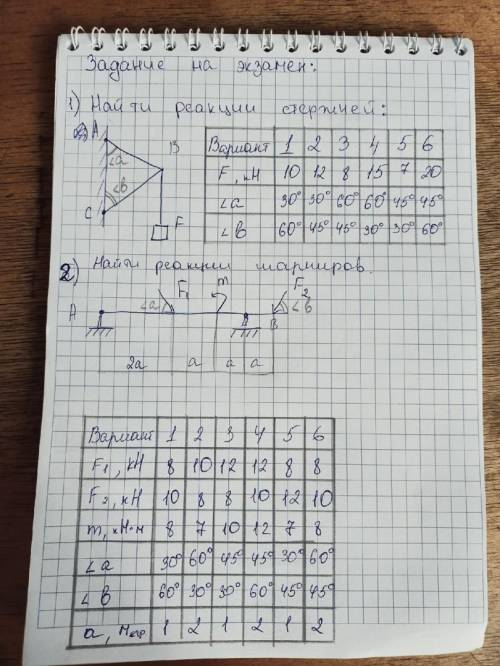 Задание на экзамен:
1) Найти реакции стержней:
A
B
∠a
∠b
C
F
Вариант 1 2 3 4 5 6
F, кН 10 12 8 15 7 20
∠a 30° 30° 60° 60° 45° 45°
∠b 60° 45° 45° 30° 30° 60°
2) Найти реакции шарниров.
A ∠a F₁ m B F₂ ∠b
2a a a a
Вариант 1 2 3 4 5 6
F₁, кН 8 10 12 12 8 8
F₂, кН 10 8 8 10 12 10
m, кН·м 8 7 10 12 7 8
∠a 30° 60° 45° 45° 30° 60°
∠b 60° 30° 30° 60° 45° 45°
a, 1 2 1 2 1 2